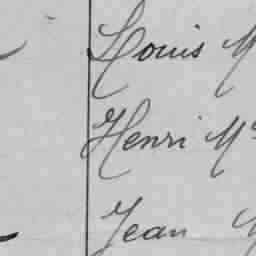 Louis M
Henri M
Jean